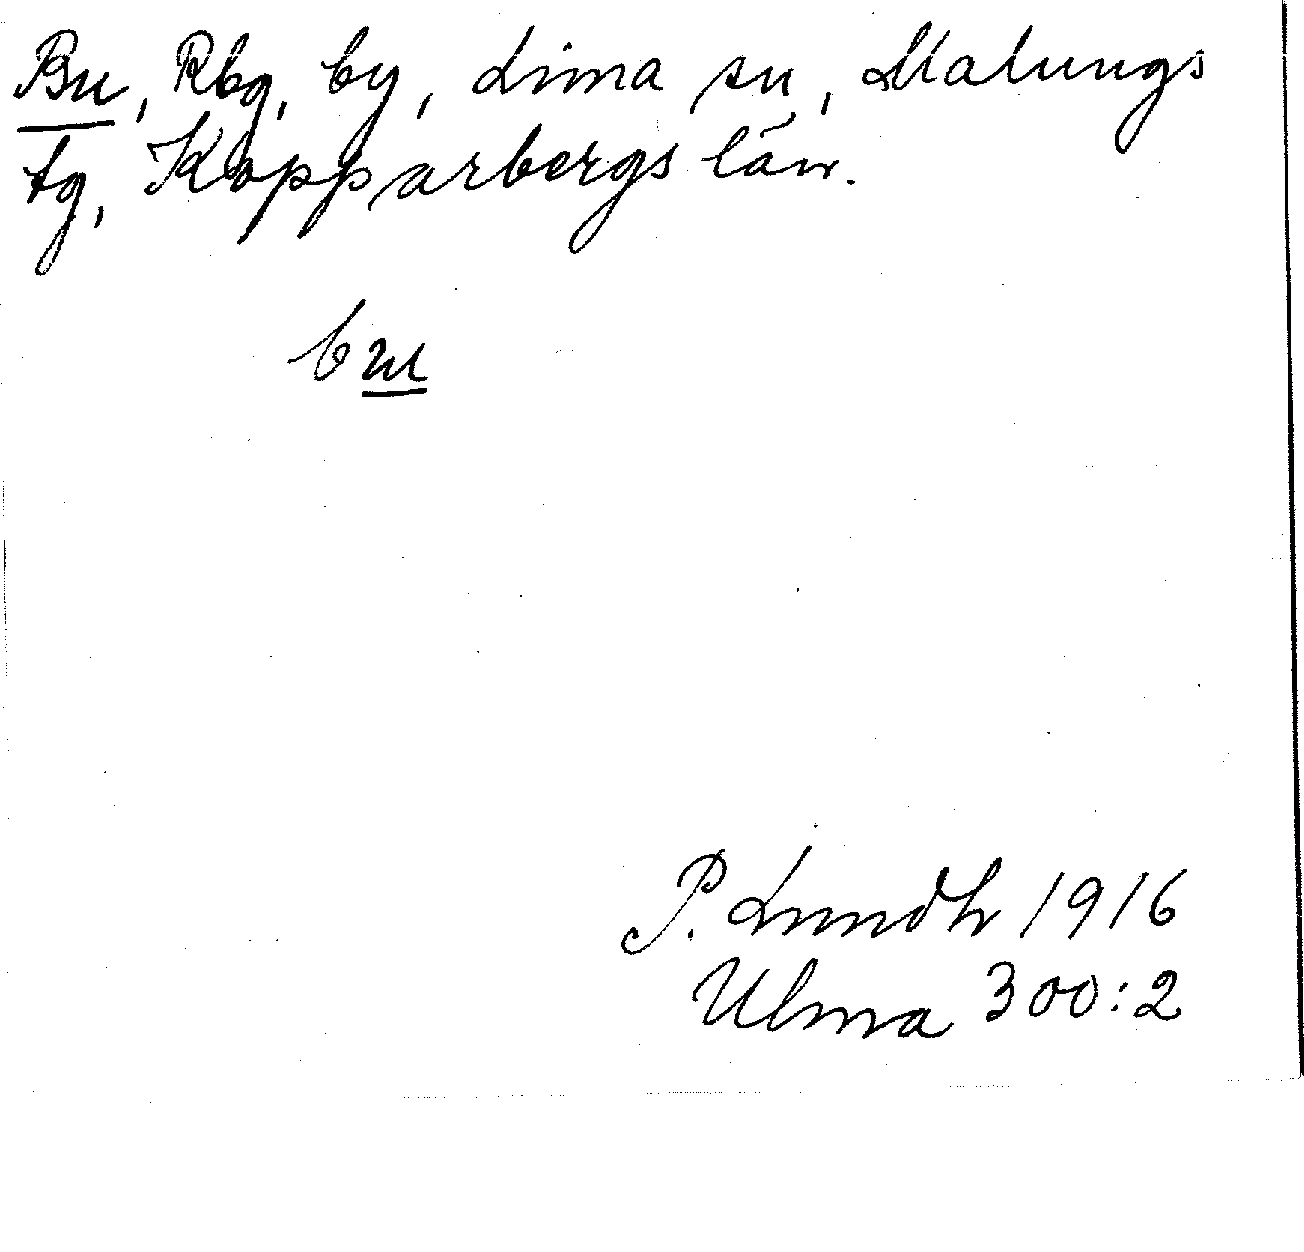 Bu, Rbg, by, Lima sn, Malungs
tg, Kopparbergs län.
P. Lundh 1916
Ulma 300:2